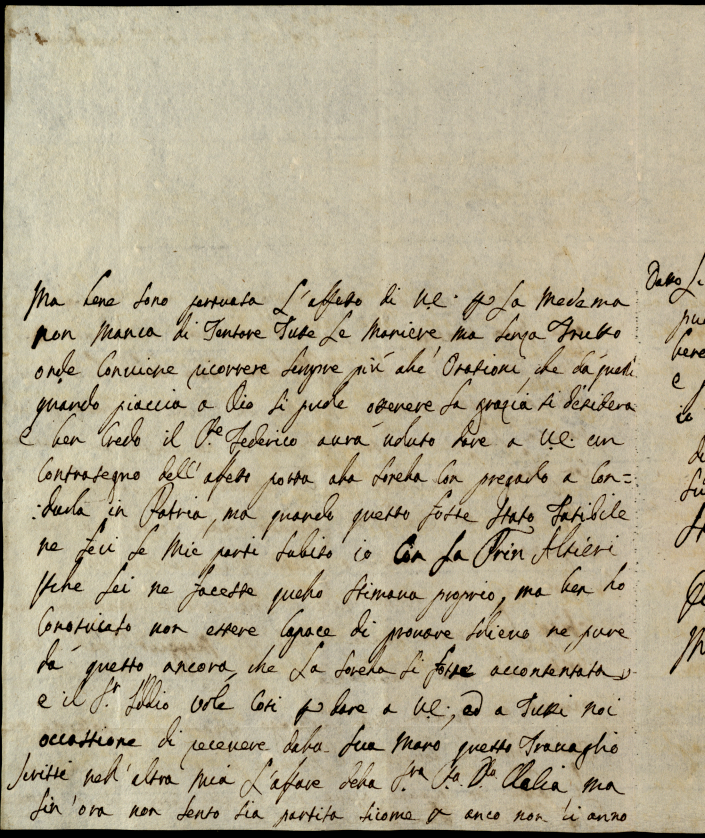 Ma bene sono persuasa L'affetto di V.E. p La medema
non manca di Tentare Tutte Le Maniere ma senza Frutto
onde Conviene ricorrere sempre più alle Orationi, che da questi
quando piaccia a Dio si puole ottenere la grazia si desidera
e ben Credo il Pe Federico aurà uoluto dare a V.E. un
Contrasegno dell'affetto porta alla sorella Con pregarlo a Con=
:durla in Patria, ma quando questo fosse stato fatibile
ne feci le mie parti subito io Con La Prin Altieri
che lei ne facesse quello stimava proprio, ma ben ho
Conosciuto non essere Capace di provare solievo ne pure
da questo ancora, che La sorella si fosse accontentata
e il Sr Iddio vole Così p dare a V.E., ed a Tutti noi
occassione di receuere dalla sua mano questo Travaglio
scritti nell'altra mia L'affare della Sra Da Clelia ma
sin'ora non sento sia partita sicome anco non ci anno
Datto
e